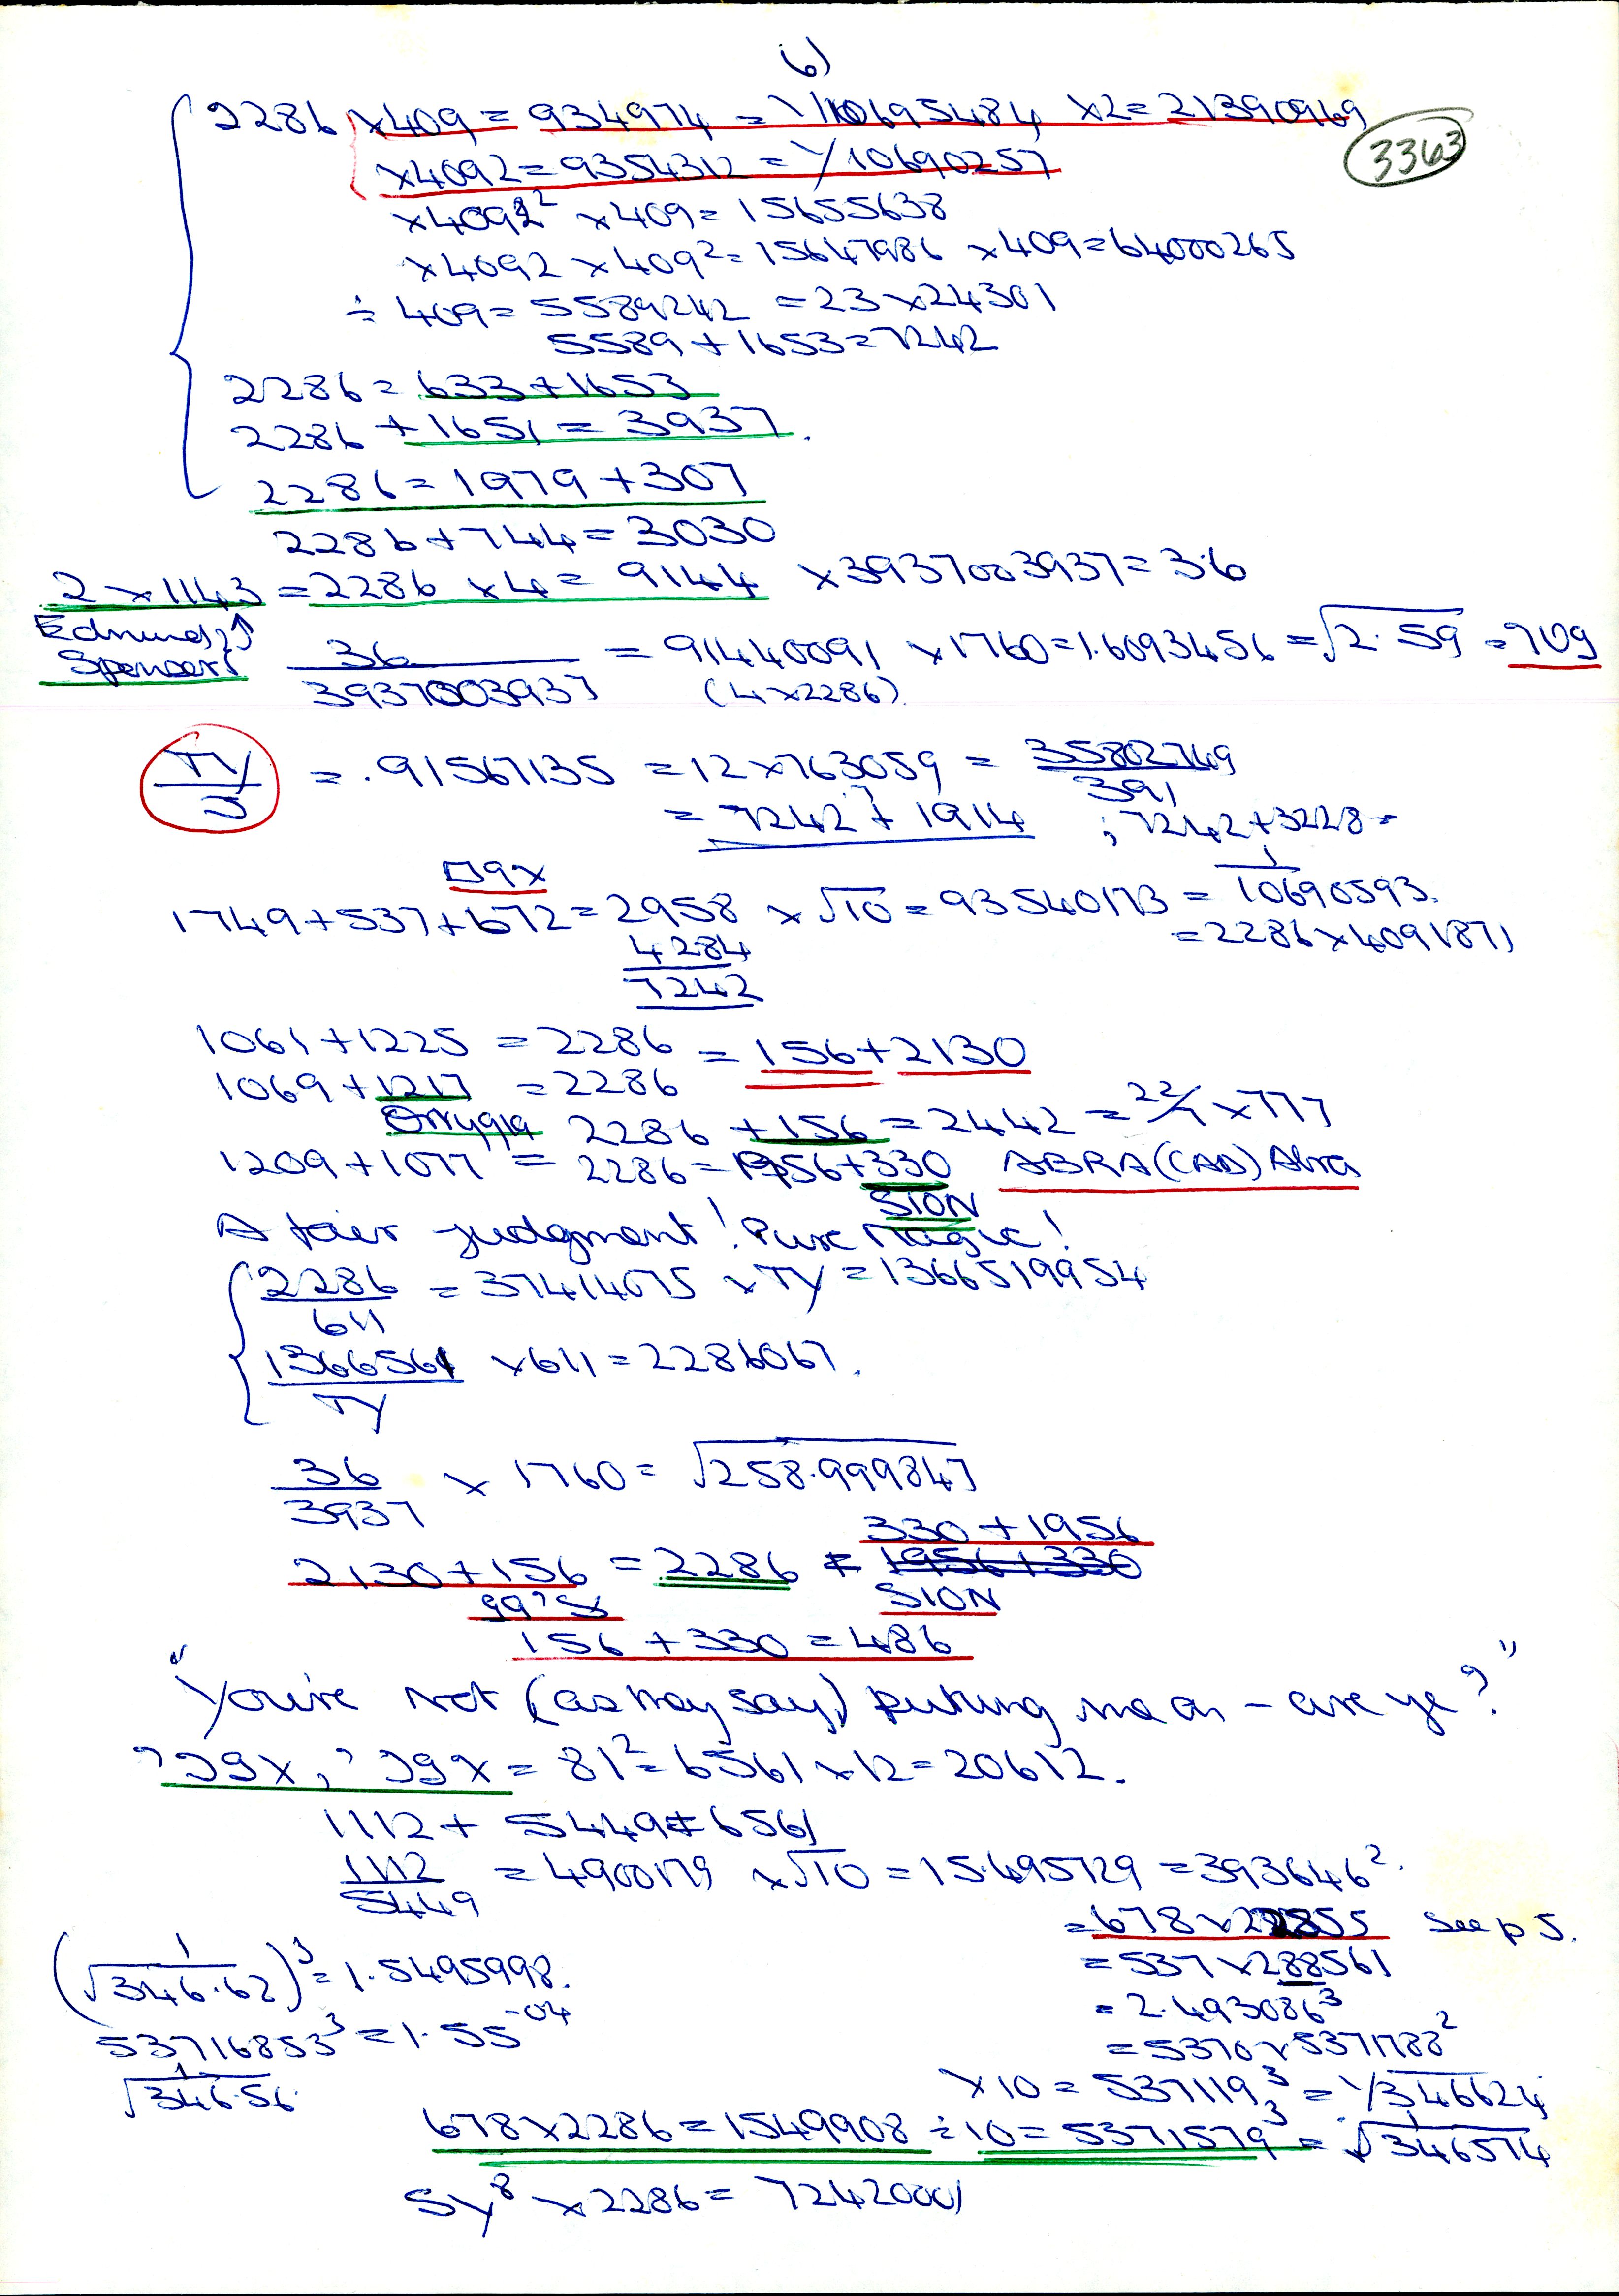 6)
2286 ×409 = 934974 = 1/10695484 ×2 = 21390969
3363
×4092 = 9354312 = 1/10690257
×4092² ×409 = 15655638
×4092 ×409² = 15647986 ×409 = 64000265
÷ 409 = 5589242 = 23 × 24301
5589 + 1653 = 7242
2286 = 633 + 1653
2286 + 1651 = 3937.
2286 = 1979 + 307
2286 + 744 = 3030
2 × 1143 = 2286 × 4 = 9144 × 3937003937 = 3.6
Edmund ↑
Spenser!
36/3937003937 = 91440091 × 1760 = 1.6093456 = √2.59 = 709
(4 × 2286)
TY/5 = .91567135 = 12 × 763059 = 35802769/391
= 7242 + 1914 ; 7242 + 3228 =
1749 + 537 + 672 = 2958 × √10 = 93540173 = 1/10690593.
4284
= 2286 × 4091871
7242
1061 + 1225 = 2286 = 156 + 2130
1069 + 1217 = 2286
Ortygia 2286 + 156 = 2442 = 22/7 × 777
1209 + 1077 = 2286 = 1956 + 330 ABRA(CAD)Abra
SION
A fair judgment! Pure Magic!
2286/611 = 37414075 × TY = 1366519954
1366561/TY × 611 = 2286067.
36/3937 × 1760 = √258.999847
330 + 1956
2130 + 156 = 2286 = 1956 + 330
SION
156 + 330 = 486
"You're not (as they say) putting me on - are ye?"
= 81² = 6561 × 12 = 20612.
1112 + 5449 = 6561
1112/5449 = 4900179 × √10 = 15.495729 = 393646².
= 678 × 22855 See p 5.
(1/√346.62)³ = 1.5495998.
= 537 × 288561
= 2.493086³
53716853³ = 1.55⁻⁰⁴
= 5370 × 5371788²
1/√346.56
×10 = 537119³ = 1/√346624
678 × 2286 = 1549908 ÷ 10 = 5371579³ = 1/√346574
5y⁸ × 2286 = 72420001